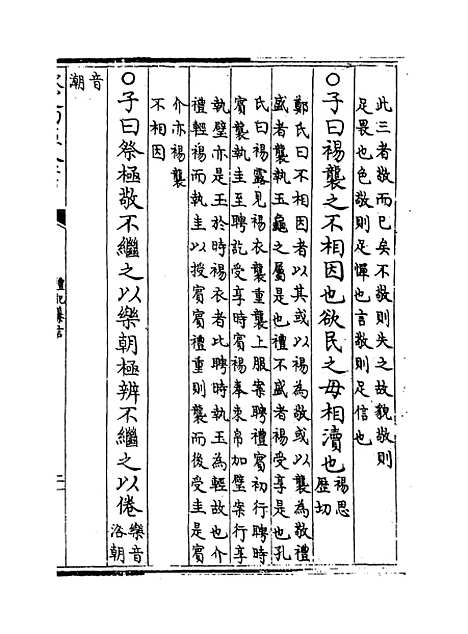 此三者敬而已矣不敬則失之故貌敬則
足畏也色敬則足憚也言敬則足信也
○子曰裼襲之不相因也欲民之毋相瀆也裼思歷切
鄭氏曰不相因者以其或以裼為敬或以襲為敬禮
盛者襲執玉龜之屬是也禮不盛者裼受享是也孔
氏曰裼露見裼衣襲重襲上服案聘禮賓初行聘時
賓襲執圭至聘訖受享時賓裼奉束帛加璧案行享
執璧亦是玉於時裼衣者比聘時執玉為輕故也介
禮輕裼而執圭以授賓賓禮重則襲而後受圭是賓
介亦裼襲
不相因
○子曰祭極敬不繼之以樂朝極辨不繼之以倦樂音洛朝
音
潮
禮記集言